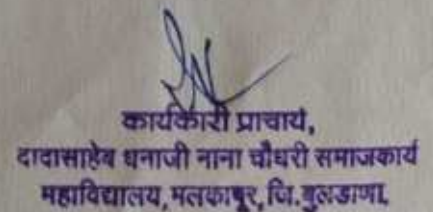 कार्यकारी प्राचार्य,
दादासाहेब धनाजी नाना चौधरी समाजकार्य
महाविद्यालय, मलकापूर, जि. बुलडाणा.